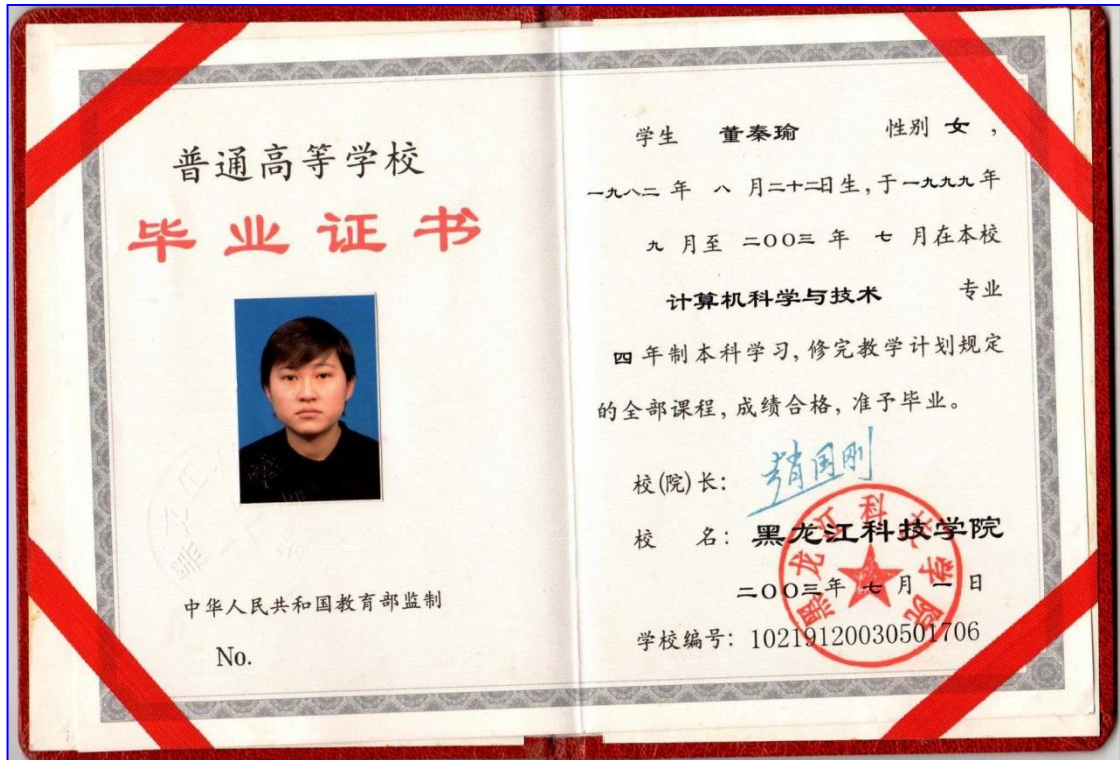 普通高等学校
毕业证书
中华人民共和国教育部监制
No.
学生 董秦瑜 性别 女，
一九八二 年 八 月二十二日生，于一九九九年
九 月至 二〇〇三 年 七 月在本校
计算机科学与技术 专业
四 年制本科学习，修完教学计划规定
的全部课程，成绩合格，准予毕业。
校(院)长： 赵国刚
校 名： 黑龙江科技学院
二〇〇三年 七 月 一 日
学校编号：10219120030501706
黑龙江科技学院